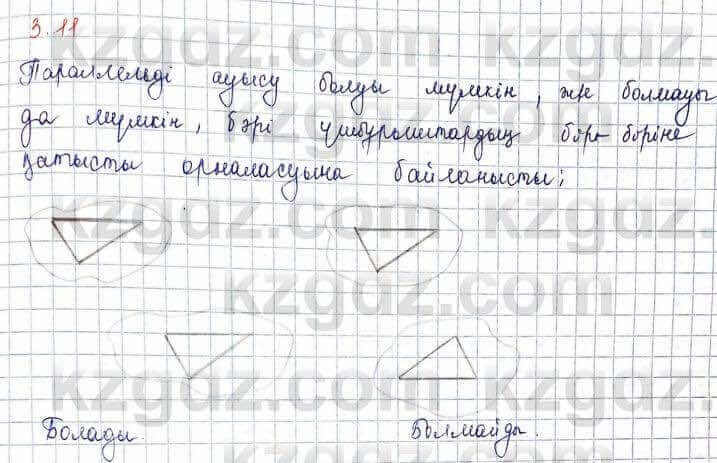 3.11
Параллельді ауысу болуы мүмкін, жә болмауы
да мүмкін, бәрі үшбұрыштардың бір-біріне
қатысты орналасуына байланысты;
Болады.
Болмайды.
kzgdz.com
kzgdz.com
kzgdz.com
kzgdz.com
kzgdz.com